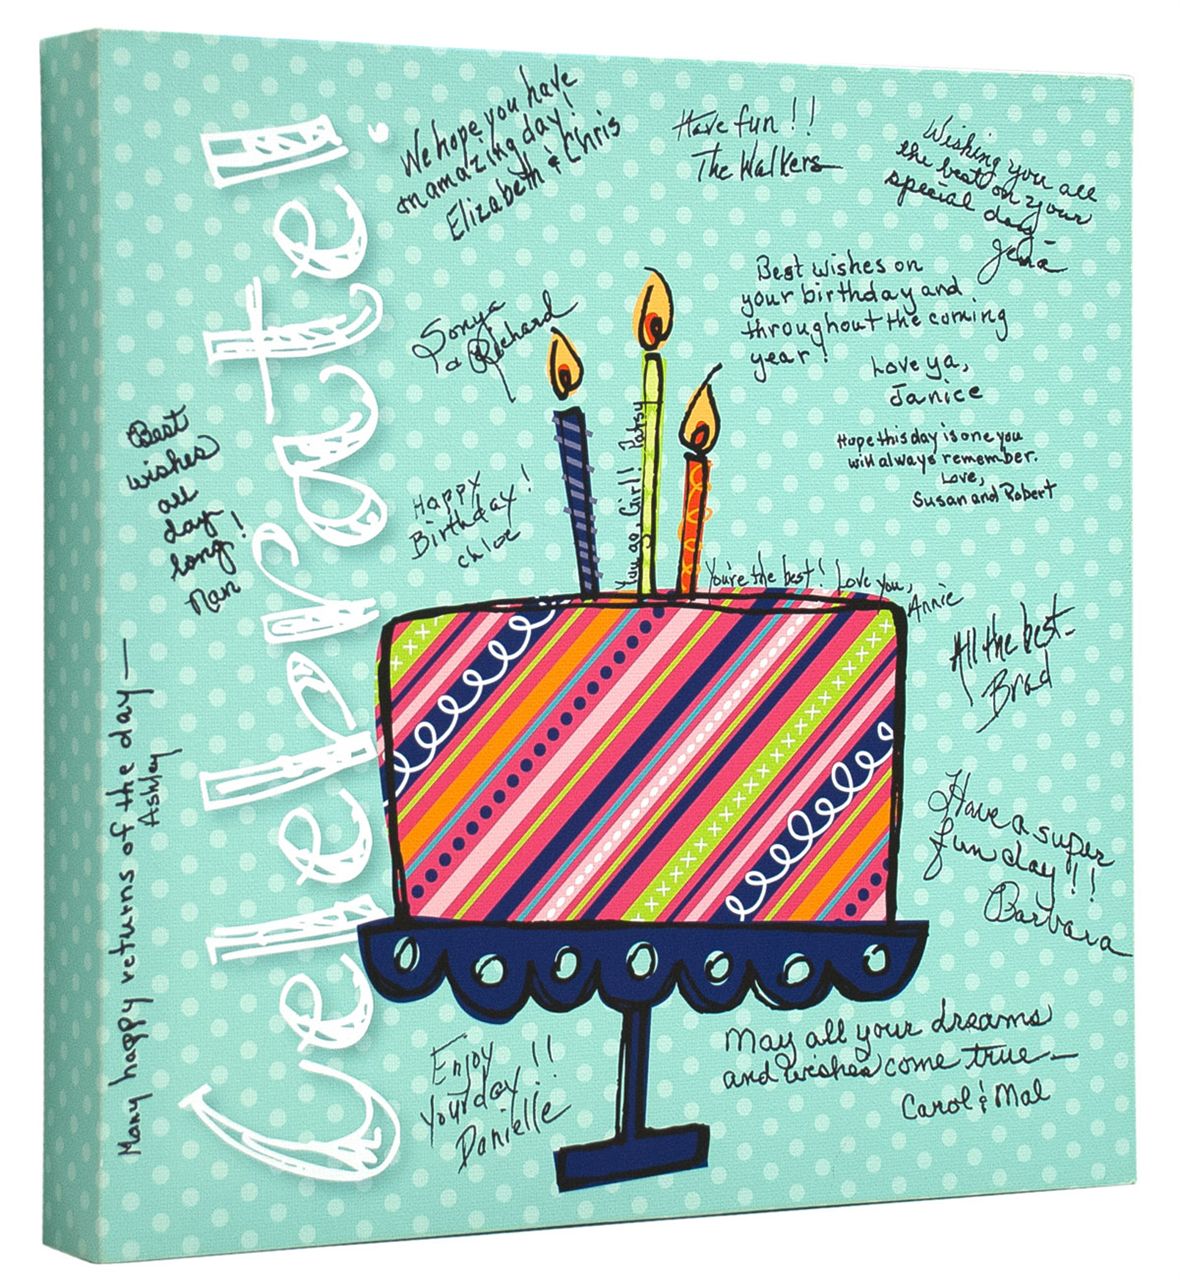 Celebrate!
We hope you have
an amazing day!
Elizabeth & Chris
Have fun!!
The Walkers
Wishing you all
the best on your
special day
Jena
Sonya
& Richard
Best wishes on
your birthday and
throughout the coming
year!
Love ya,
Janice
Hope this day is one you
will always remember.
Love,
Susan and Robert
Best
wishes
all
day
long!
Nan
Happy
Birthday!
Chloe
You go Girl! Patsy
You're the best! Love you,
Annie
All the best-
Brad
Many happy returns of the day—
Ashley
Have a super
fun day!!
Barbara
Enjoy
Your day!!
Danielle
May all your dreams
and wishes come true—
Carol & Mal